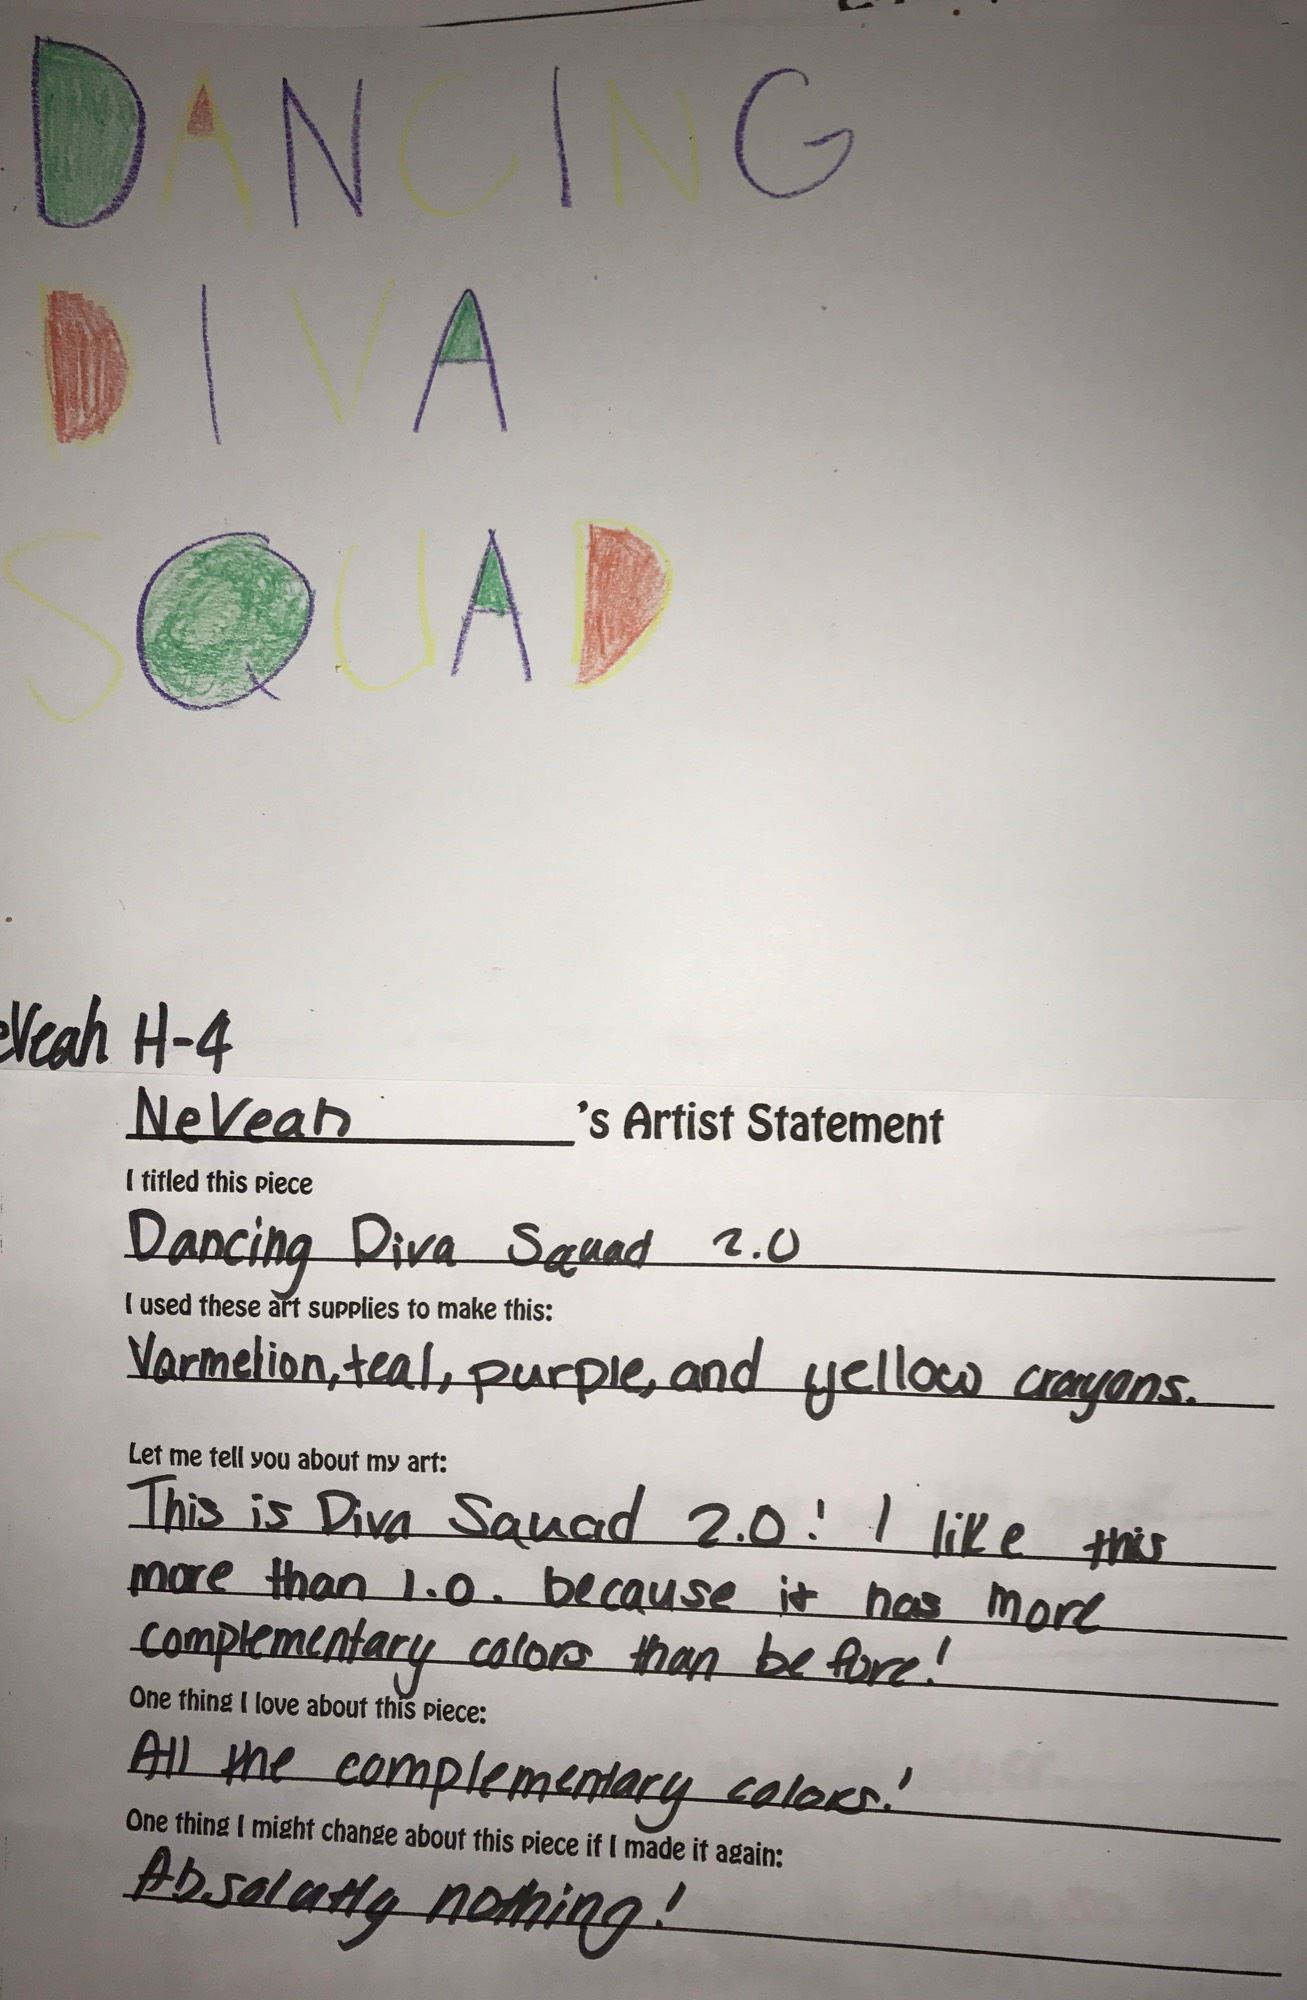 DANCING
DIVA
SQUAD
eVeah H-4
NeVeah 's Artist Statement
I titled this piece
Dancing Diva Squad 2.0
I used these art supplies to make this:
Varmelion, teal, purple, and yellow crayons.
Let me tell you about my art:
This is Diva Squad 2.0! I like this
more than 1.0. because it has more
complementary colors than before!
One thing I love about this piece:
All the complementary colors!
One thing I might change about this piece if I made it again:
Absolutly nothing!